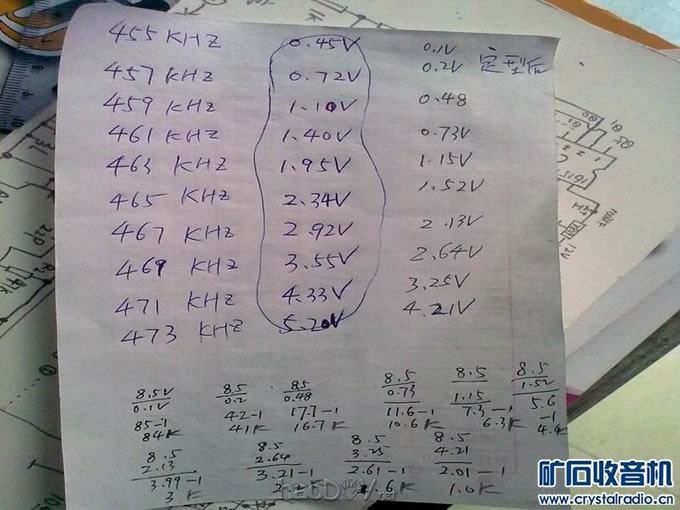 455 KHZ 0.45V 0.1V
457 KHZ 0.72V 0.2V 定型后
459 KHZ 1.10V 0.48
461 KHZ 1.40V 0.73V
463 KHZ 1.95V 1.15V
465 KHZ 2.34V 1.52V
467 KHZ 2.92V 2.13V
469 KHZ 3.55V 2.64V
471 KHZ 4.33V 3.25V
473 KHZ 5.20V 4.21V
8.5V 8.5 8.5 8.5 8.5 8.5
0.1V 0.2 0.48 0.73 1.15 1.52
85-1 42-1 17.7-1 11.6-1 7.3-1 5.6-1
84K 41K 16.7K 10.6K 6.3K 4.4K
8.5 8.5 8.5 8.5
2.13 2.64 3.25 4.21
3.99-1 3.21-1 2.61-1 2.01-1
3K 1.6K 1.0K
矿石收音机
www.crystalradio.cn